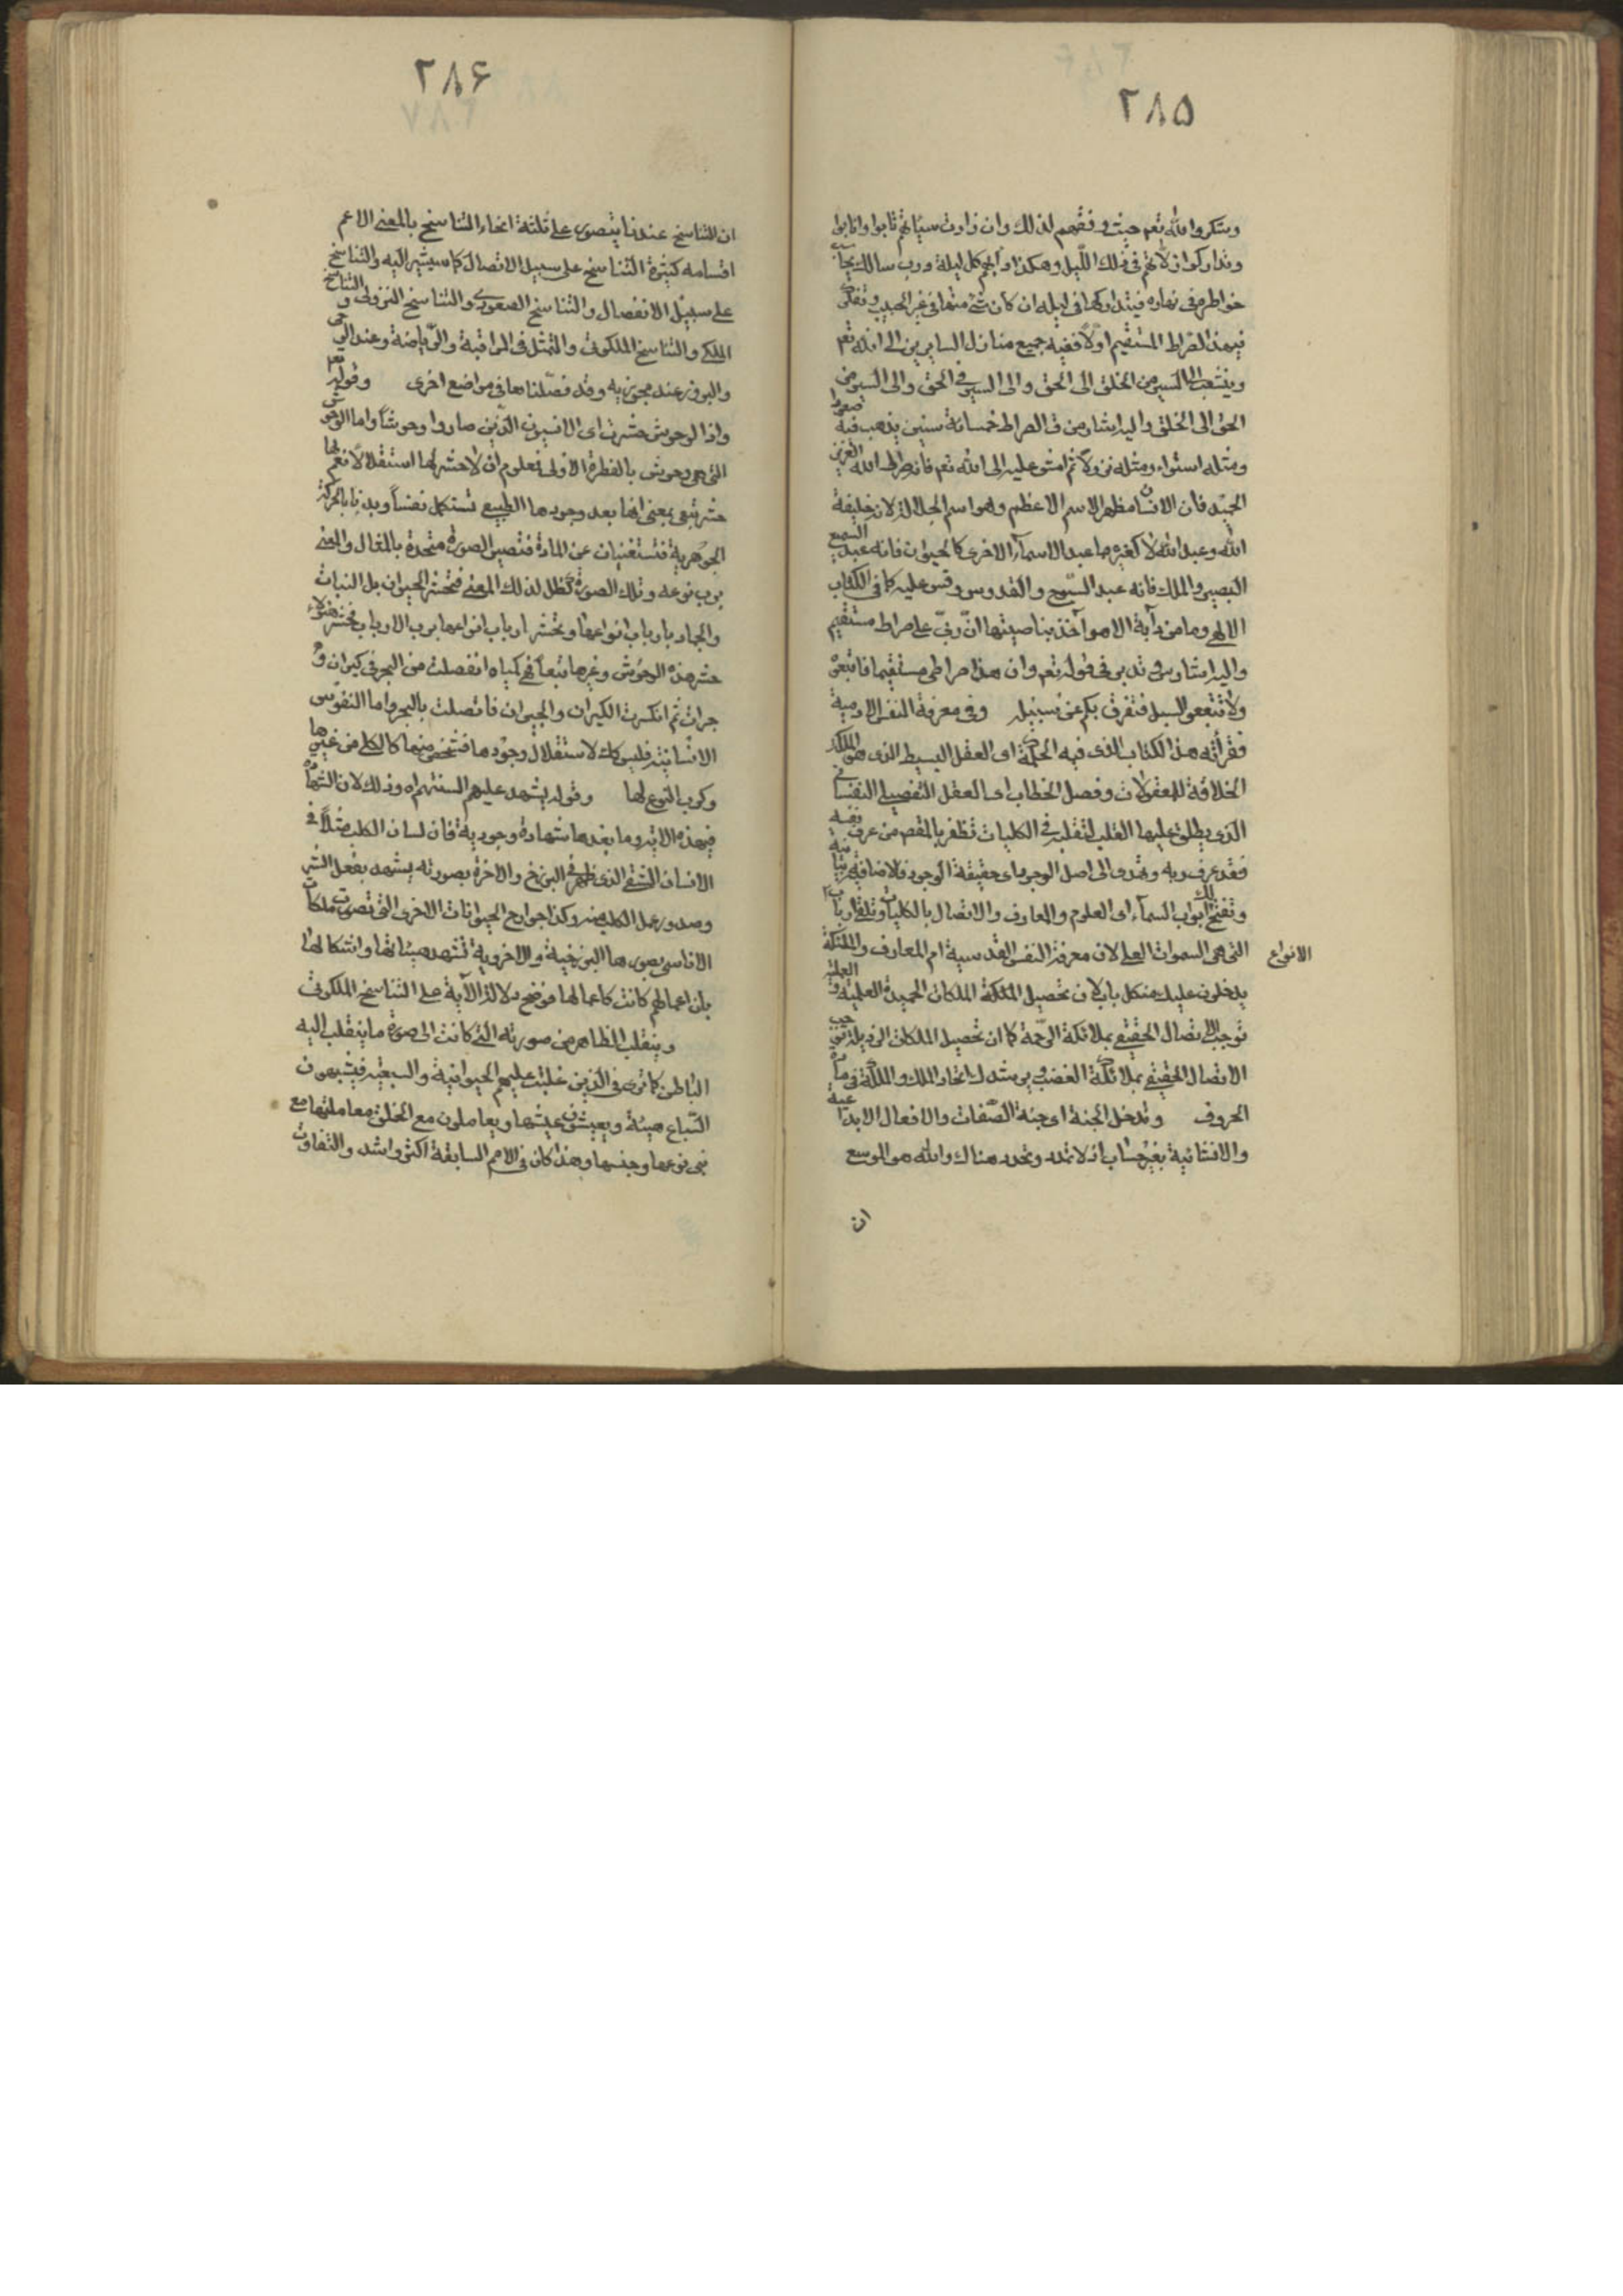 ٢٨۵
وشكروا الله تعم حيث وفقهم لذلك وان زادت سيئاتهم تابوا وانابوا
وتداركوا زلاتهم في ذلك الليل وهكذا دأبهم كل ليلة ورب سالك يحاسب
خواطره في نهاره فيتداركها في ليله ان كان شئ منها في غير الحبيب وتفكر
فبهذا الصراط المستقيم اولا ففيه جميع منازل السايرين الى الله تعم
وينشعب الى السير من الخلق الى الحق والى السير في الحق والى السير من
الحق الى الخلق واليه اشار من ق الصراط خمسائة سنين يذهب فيه صعودا
ومثله استواء ومثله نزولا ثم امش عليه الى الله تعم فانه صراط الله العزيز
الحميد فان الانسان مظهر الاسم الاعظم وهو اسم الجلالة لانه خليفة
الله وعبد الله لا كغيره مما عبد الاسماء الاخرى كالحيوان فانه عبد السميع
البصير والملك فانه عبد السبوح والقدوس وقس عليه كما في الكتاب
الالهي وما من دآبة الا هو آخذ بناصيتها ان ربي على صراط مستقيم
واليه اشار وفي تدبر في قوله تعم وان هذا صراطي مستقيما فاتبعوه
ولا تتبعوا السبل فتفرق بكم عن سبيله وفي معرفة النفس الادمية
فقرأته هذا الكتاب الذي فيه الحكمة اى العقل البسيط الذي هو الملكة
الخلاقة للمعقولات وفصل الخطاب اى العقل التفصيلي النفساني
الذي يطلق عليها القلب لتقلبه في الكليات تظفر بالمقصد من عرف نفسه
فقد عرف ربه وتهدى الى اصل الوجود اى حقيقة الوجود فالاضافة بيانية
وتفتح لك ابواب السمآء اى العلوم والمعارف والاتصال بالكليات وتلقى ارباب
الانواع
التي هي السموات العلى لان معرفة النفس القدسية ام المعارف والملئكة
يدخلون عليك من كل باب لان تحصيل الملكة الملكات الحميدة العلمية والعملية
توجب الاتصال الحقيقي بملائكة الرحمة كما ان تحصيل الملكات الرذيلة توجب
الاتصال الحقيقي بملائكة الغضب ويرشدك اتحاد الملك والملكة في مادة
الحروف وتدخل الجنة اى جنة الصفات والافعال الابداعية
والانشائية بغير حساب اذ لا تمدد وتحدد هناك والله هو الموسع
ان
٢٨۶
ان للتناسخ عندنا يتصور على ثلثة انحاء التناسخ بالمعنى الاعم
اقسامه كثيرة التناسخ على سبيل الاتصال كما سيشير اليه والتناسخ
على سبيل الانفصال والتناسخ الصعودي والتناسخ النزولي والتناسخ
الملكي والتناسخ الملكوتي والتمثل في المراقبة والرياضة وعند الوحى
والبروز عند مجوزيه وقد فصلناها في مواضع اخرى وقوله تعم
واذا الوحوش حشرت اى الانسيون الذين صاروا وحوشا واما الوحوش
التي هي وحوش بالفطرة الاولى فمعلوم ان لا حشر لها استقلالا نعم لها
حشر تبعي بمعنى انها بعد وجودها الطبيعي تستكمل نفسا وبدنا بالحركة
الجوهرية فتستغنيان عن المادة فتصير الصورة متحدة بالمثال والمعنى
برب نوعه وتلك الصورة كظل لذلك المعنى فتحشر الحيوان بل النبات
والجماد بارباب انواعها وتحشر ارباب انواعها برب الارباب فحشر هؤلاء
حشر هذه الوحوش وغيرها تبعا فهي كمياه انفصلت من البحر في كيزان و
جرات ثم انكسرت الكيزان والجرات فاتصلت بالبحر واما النفوس
الانسانية فليس كك لاستقلال وجودها فشخص منها كالكلي من غيرها
وكرب النوع لها وقوله يشهد عليهم السنتهم اه وذلك لان الشهادة
في هذه الاية وما بعدها شهادة وجودية فان لسان الكلب مثلا في
الانسان الشقي الذي ظهر في البرزخ والاخرة بصورته يشهد بفعل الشر
وصدور عمل الكلب منه وكذا جوارح الحيوانات الاخرى التي تصورت ملكات
الاناسي بصورها البرزخية والاخروية تشهد هيئاتها واشكالها
بان اعمالهم كانت كاعمالها فوضح دلالة الآية على التناسخ الملكوتي
وينقلب الظاهر من صورته التي كانت الى صورة ما ينقلب اليه
الباطن كما ترى في الذين غلبت عليهم الحيوانية والسبعية فيشبهون
السباع هيئة ويعيشون عيشها ويعاملون مع الخلق معاملتها مع
بني نوعها وجنسها وهذا كان في الامم السابقة اكثر واشد والتفاوت